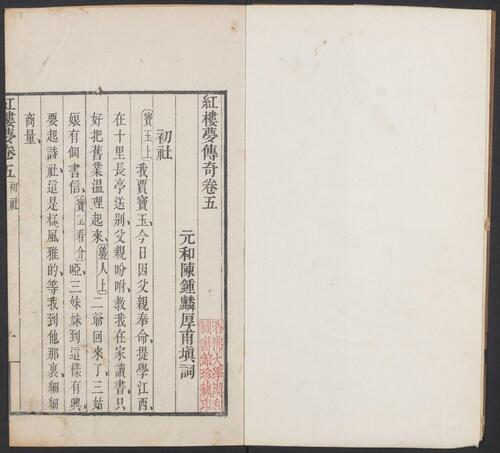 紅樓夢傳奇卷五
元和陳鍾麟厚甫塡詞
初社
寶玉上我賈寶玉今日因父親奉命提學江西
在十里長亭送別父親吩咐教我在家讀書只
好把舊業溫理起來襲人上二爺回來了三姑
娘有個書信寶玉看介啞三妹妹到這樣有興
要起詩社這是極風雅的等我到他那裏細細
商量
紅樓夢卷五 初社 一
哈佛大學漢和
圖書館珍藏印